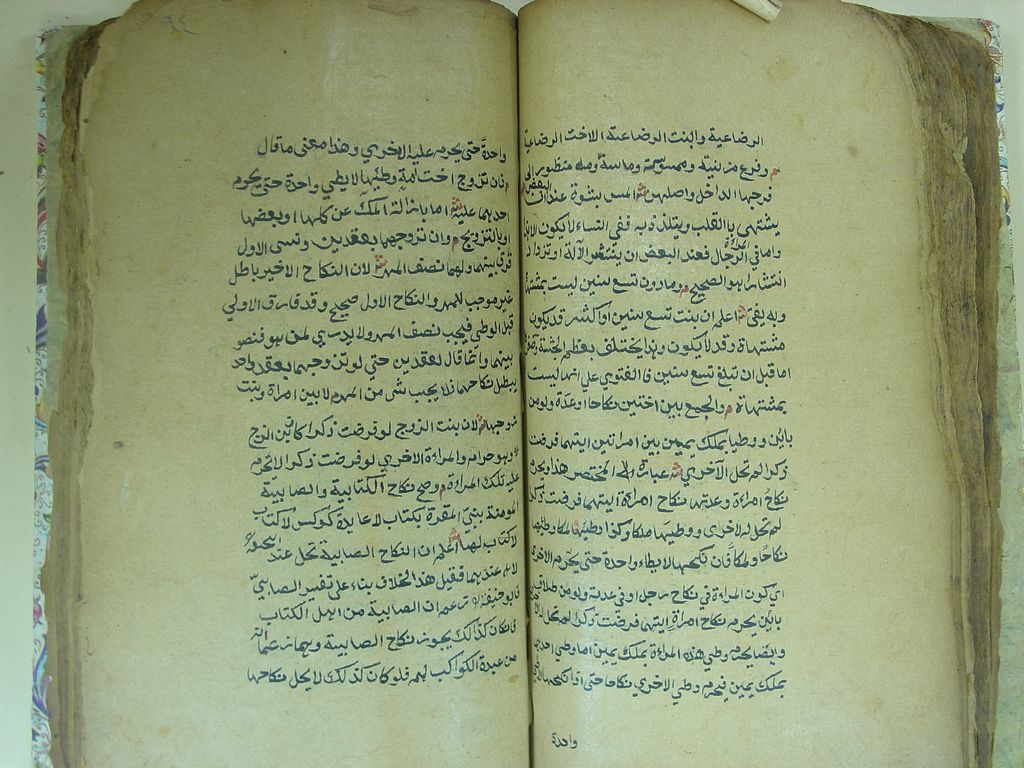 الرضاعية والبنت الرضاعية الاخت الرضاعية
م وفرع مزنيته وممسوسته وماسته ومنظور الى
فرجها الداخل واصلهن ش المس بشهوة عند البعض ان
يشتهي بالقلب ويتلذذ به ففي النساء لا يكون الا
واما في الرجال فعند البعض ان ينتشر الآلة او تزداد
انتشارا هو الصحيح م وما دون تسع سنين ليست بمشتهاة
وبه يفتى ش اعلم ان بنت تسع سنين او اكثر قد يكون
مشتهاة وقد لا يكون وهذا يختلف بعظم الجثة
اما قبل ان تبلغ تسع سنين فالفتوى على انها ليست
بمشتهاة م والجمع بين اختين نكاحا وعدة ولو من
باين ووطيا بملك يمين بين امراتين ايتهما فرضت
ذكرا لم تحل الاخرى ش عبارة المختصر هذا ويحرم
نكاح امراة وعدتها نكاح امراة ايتهما فرضت ذكرا
لم تحل له الاخرى ووطيها ملكا وكذا وطيها ملكا وطيها
نكاحا وملكا فان نكحها لا يطاء واحدة حتى يحرم الاخرى
اي كون المراءة في نكاح رجل او في عدته ولو من طلاق
باين يحرم نكاح امراة ايتهما فرضت ذكرا لم تحل
وايضا يحرم وطي هذه المراءة بملك يمين اما وطي احديهما
بملك يمين فيحرم وطي الاخرى نكاحا حتى
واحدة
واحدة حتى يحرم عليه الاخرى وهذا معنى ما قال
م فان تزوج اخت امة وطيها لا يطي واحدة حتى يحرم
احديهما عليه ش اما بازالة الملك عن كلها او بعضها
او بالتزويج م وان تزوجهما بعقدين ونسى الاول
فرق بينهما ولهما نصف المهر ش لان النكاح الاخير باطل
غير موجب للمهر والنكاح الاول صحيح وقد فارق الاولى
قبل الوطي فيجب نصف المهر ولا يدري لمن هو فنصف
بينهما وانما قال بعقدين حتى لو تزوجهما بعقد واحد
يبطل نكاحهما فلا يجب شي من المهر م لا بين امراة وبنت
زوجها ش لان بنت الزوج لو فرضت ذكرا كان ابن الزوج
وهو حرام والمراءة الاخرى لو فرضت ذكرا لا تحرم
عليه تلك المراءة م وصح نكاح الكتابية والصابية
المومنة بنبي المقرة بكتاب لا عابدة كوكب لا كتاب
لا كتاب لها ش اعلم ان النكاح الصابية تحل عند ابي حنيفة
لا عندهما فقيل هذا الخلاف بناء على تفسير الصابي
فابو حنيفة زعم ان الصابية من اهل الكتاب
فان كان كذلك يجوز نكاح الصابية وهما زعما انه
من عبدة الكواكب لهم فلو كان كذلك لا يحل نكاحها